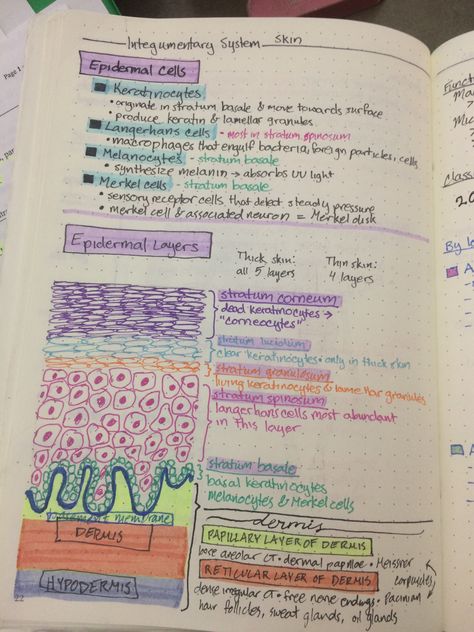 Integumentary System  skin
Epidermal Cells
Keratinocytes
• originate in stratum basale & move towards surface
• produce keratin & lamellar granules
Langerhans cells - most in stratum spinosum
• macrophages that engulf bacteria, foreign particles, cells
Melanocytes - stratum basale
• synthesize melanin → absorbs UV light
Merkel cells - stratum basale
• sensory receptor cells that detect steady pressure
• merkel cell & associated neuron = Merkel disk
Epidermal Layers
Thick skin:
all 5 layers
Thin skin:
4 layers
stratum corneum
dead keratinocytes →
"corneocytes"
stratum lucidum
clear keratinocytes • only in thick skin
stratum granulosum
living keratinocytes & lamellar granules
stratum spinosum
langerhans cells most abundant
in this layer
stratum basale
basal keratinocytes
melanocytes & Merkel cells
membrane
DERMIS
HYPODERMIS
dermis
PAPILLARY LAYER OF DERMIS
areolar CT • dermal papillae • Meissner
corpuscles,
RETICULAR LAYER OF DERMIS
dense irregular CT • free nerve endings • Pacinian
hair follicles, sweat glands, oil glands
22
Page 1
Func
Ma
Mic
Class
20
By lo
A
A